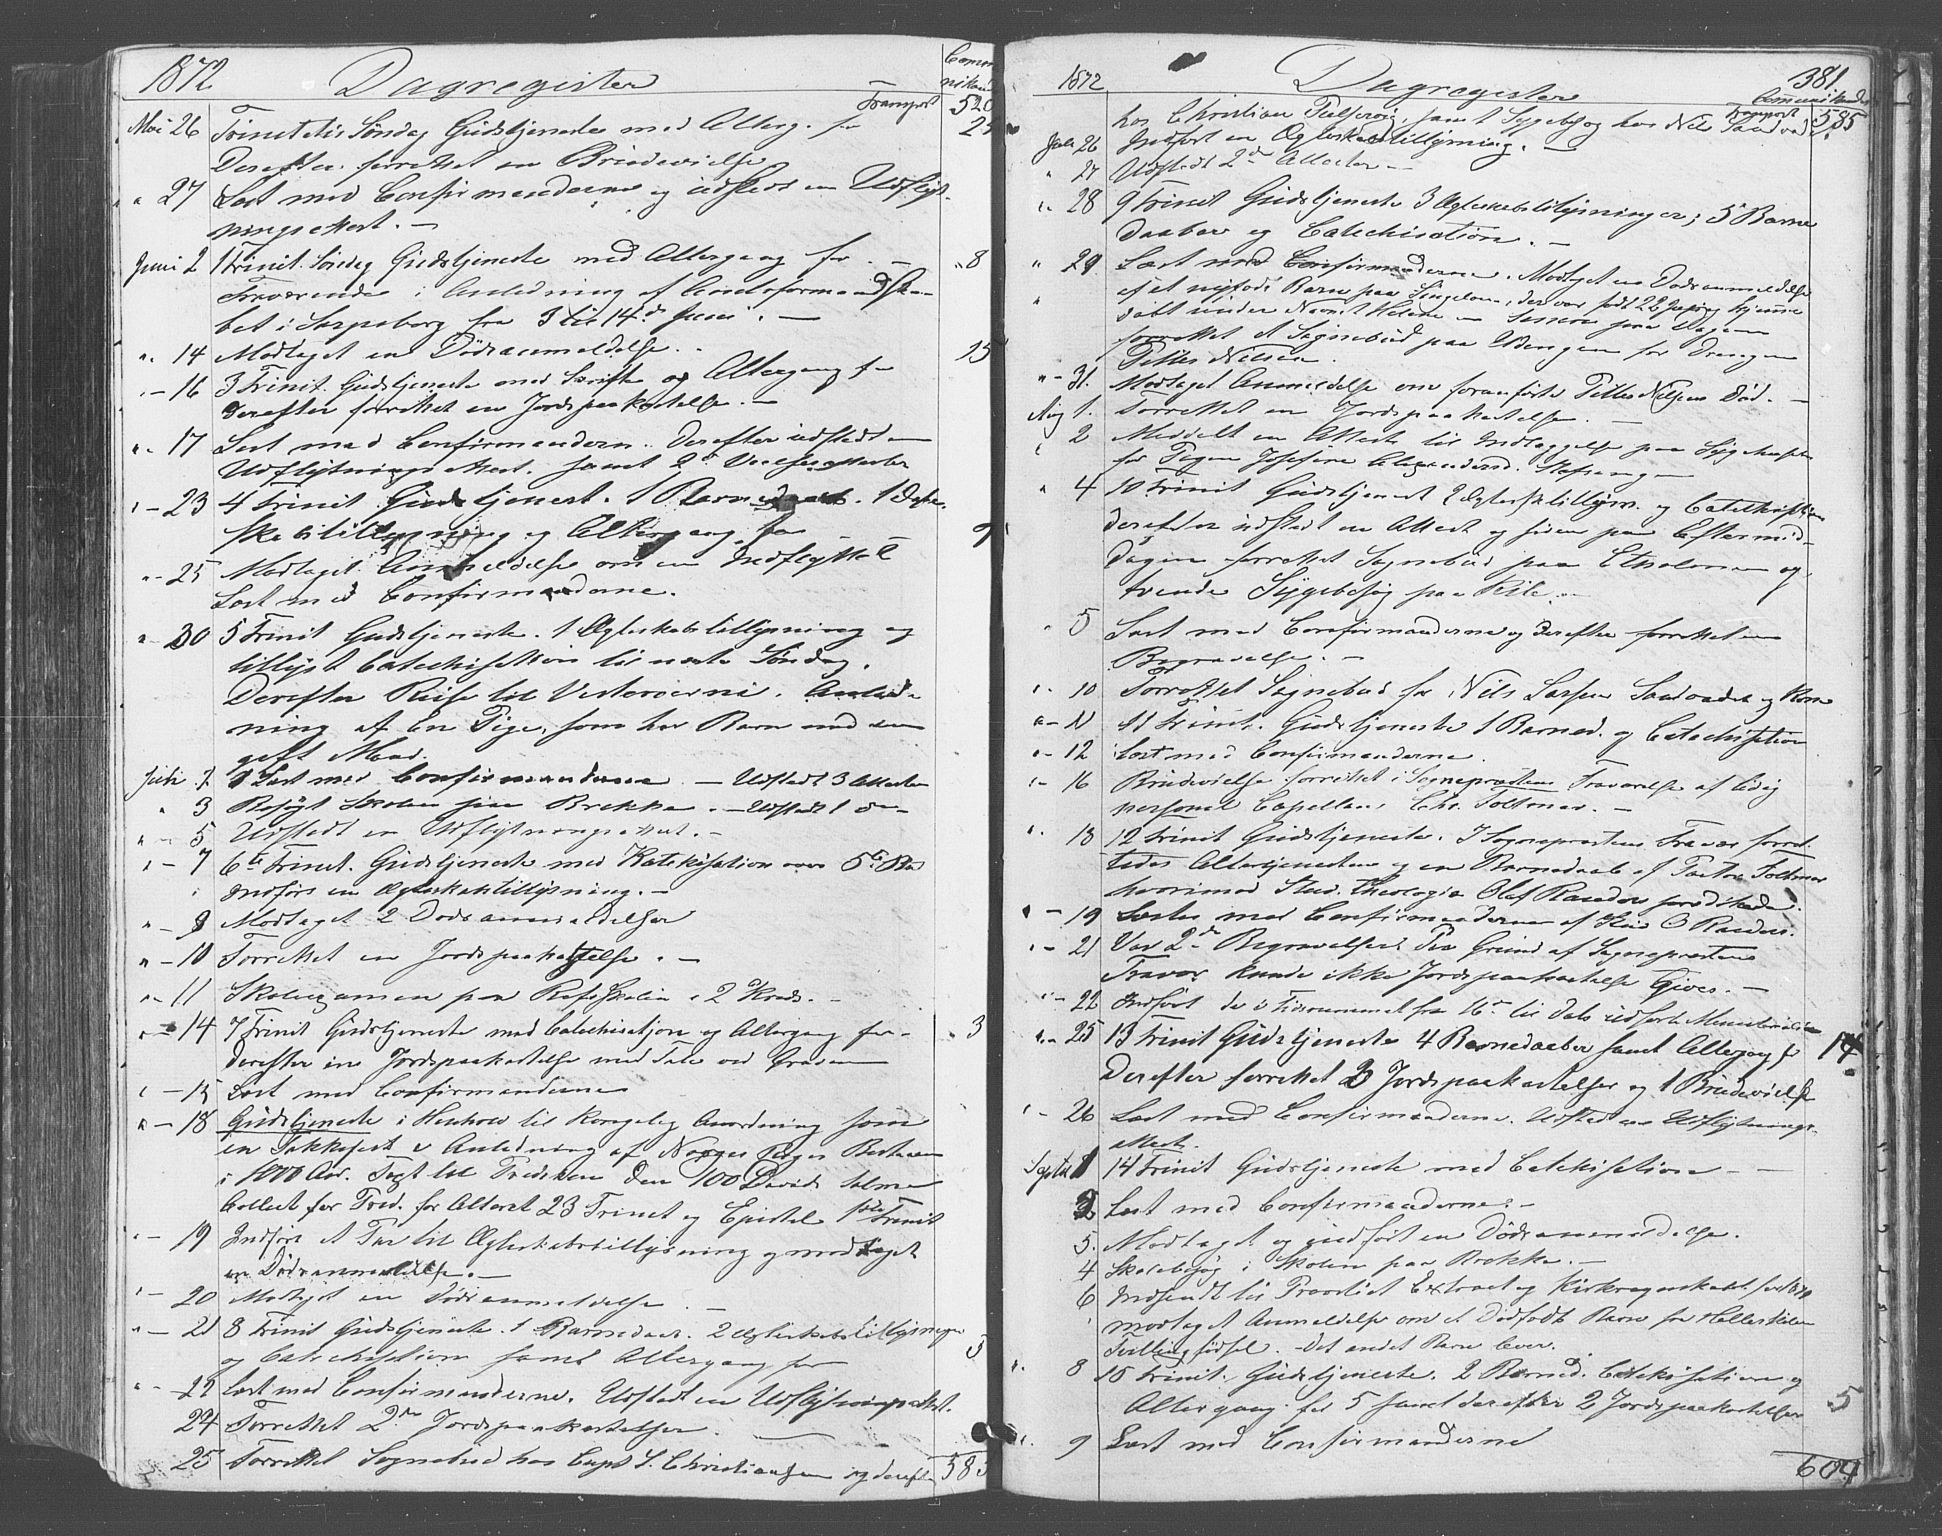 1872 Dagregister Commu
nikan
Transport 520
Mai 26 Trinitatis Søndag Gudstjeneste med Alterg. for 2
Derefter forrettet en Brudevielse
" 27 Læst med Confirmanderne og udstedt en Udflyt-
ningsattest. –
Juni 2 1 Trinit. Søndag Gudstjeneste med Altergang for – " 8
Fraværende i Anledning af
bet i Sarpsborg fra 3 til 14de Juni. –
" 14 Modtaget en Dødsanmeldelse. 15
" – 16 3 Trinit. Gudstjeneste med Skrifte og Altergang f –
Derefter forrettet en Jordspaakastelse. –
" 17 Læst med Confirmandern. Derefter udstedt en
Udflytningsattest. samt 2de
" – 23 4 Trinit Gudstjenest. 1 Barnedaab. 1 Ægte-
skabstillysning og Altergang for – 9
" – 25 Modtaget Anmeldelse om en Indflyttet
Læst med Confirmanderne.
" – 30 5 Trinit Gudstjeneste. 1 Ægteskabstillysning og
tillyst Catechisation til neste Søndag.
Derefter Reise til Vesterøerne. Anled-
ning af en Pige, som har Barn med en
gift Mand.
Juli 1 Læst med Confirmanderne – Udstedt 3 Attester
" 3 Besøgt Skolen paa Brekke. – Udstedt 1 do –
" – 5 Udstedt en Udflytningsattest. –
" – 7 6te Trinit. Gudstjeneste med Katekisation over 5te
Indført en Ægteskabstillysning. –
" – 9 Modtaget 2 Dødsanmeldelser
" – 10 Forrettet en Jordspaakastelse. –
" – 11 Skoleexamen paa i 2 Kreds. –
" – 14 7 Trinit Gudstjeneste med Catechisation og Altergang for – " 3
derefter en Jordspaakastelse med Tale ved Graven
" – 15 Læst med Confirmanderne
" – 18 Gudstjeneste i Henhold til Kongelig Anordning som
en Takkefest i Anledning af Norges Riges Bestaaen
i 1000 Aar. Text til Prædiken Den 100 Davids Salme
Collect for Præd. for Alteret 23 Trinit og Epistel 1ste Trinit
" – 19 Indført et Par til Ægteskabstillysning og modtaget
en Dødsanmeldelse. –
" – 20 Modtaget en Dødsanmeldelse. –
" – 21 8 Trinit Gudstjeneste. 1 Barnedaab. 2 Ægteskabstillysninger
og Catechisation samt Altergang for 3
" – 22 Læst med Confirmanderne. Udstedt en Udflytningsattest.
24 Forrettet 2de Jordspaakastelser
25 Forrettet Sognebud hos Capt S. Christiansen og derefter 585
1872 Dagregister 381
Communikander
Transport 585
hos Christian samt Sygebesøg hos Nils Sandvad
Juli 26 Indført en Ægteskabstillysning. –
" 27 Udstedt 2de Attester –
" 28 9 Trinit Gudstjeneste 3 Ægteskabstillysninger, 5 Barne
daaber og Catechisation. –
" 29 Læst med Confirmanderne. Modtaget en Dødsanmeldelse
af et nyfødt Barn paa Singeløen, der var født 22 Juli og hjemme
døbt under Navnet paa Dagen
forrettet et Sognebud paa for Drengen
Nilsen.
" – 31. Modtaget Anmeldelse om foranførte Nilsens Død. –
Aug 1. Forrettet en Jordspaakastelse. –
2 Meddelt en Attest til Indlæggelse paa Sygehuset
for Pigen Josefine
" 4 10 Trinit Gudstjenest 2 Ægteskabstillysn. og Catechisation
derefter udstedt en Attest og siden paa Eftermid-
dagen forrettet Sognebud paa og
tvende Sygebesøg paa
" 5 Læst med Confirmanderne og derefter forrettet en
Begravelse. –
" – 10 Forrettet Sognebud for Nils Larsen Sandvad og Kone
" – 11 11 Trinit. Gudstjeneste 1 Barned. og Catechisation
" – 12 Læst med Confirmanderne
" – 16 Brudevielse forrettet i Sognepræstens Fraværelse af
personel Capellan, Chr. Foltmar. –
" 18 12 Trinit Gudstjeneste. I Sognepræstens Fravær forret
tedes Altertjenesten og en Barnedaab af Pastor Foltmar
hvorimod Stud. theologia Olaf Raeder prædikede.
" – 19 Læstes med Confirmanderne af O Raeder.
" – 21 Var 2de Begravelser. Paa Grund af Sognepræstens
Fravær kunde ikke Jordspaakastelse Gives. –
" – 22 Indført de i Tidsrummet fra 16de til Dato udførte Ministerialia
" – 25 13 Trinit Gudstjeneste 4 Barnedaaber samt Altergang f 14
Derefter forrettet 2 Jordspaakastelser og 1 Brudevielse
" – 26 Læst med Confirmanderne. Udsted en Udflytnings-
attest.
Septbr 1 14 Trinit Gudstjeneste med Catekisation – –
2 Læst med Confirmanderne. –
5. Modtaget og indført en Dødsanmeldelse.
4 Skolebesøg i Skolen paa Brekke. –
6 Indsendt til Provstiet Extract og Kirkeregnskabet for
modtaget Anmeldelse om et Dødfødt Barn fra Helleskilen
Tvillingfødsel. – Det andet Barn lever.
" 8 15 Trinit. Gudstjeneste. 2 Barned. Catekisation og
Altergang for 5 samt derefter 2 Jordspaakastelser 5
" 9 Læst med Confirmanderne
604